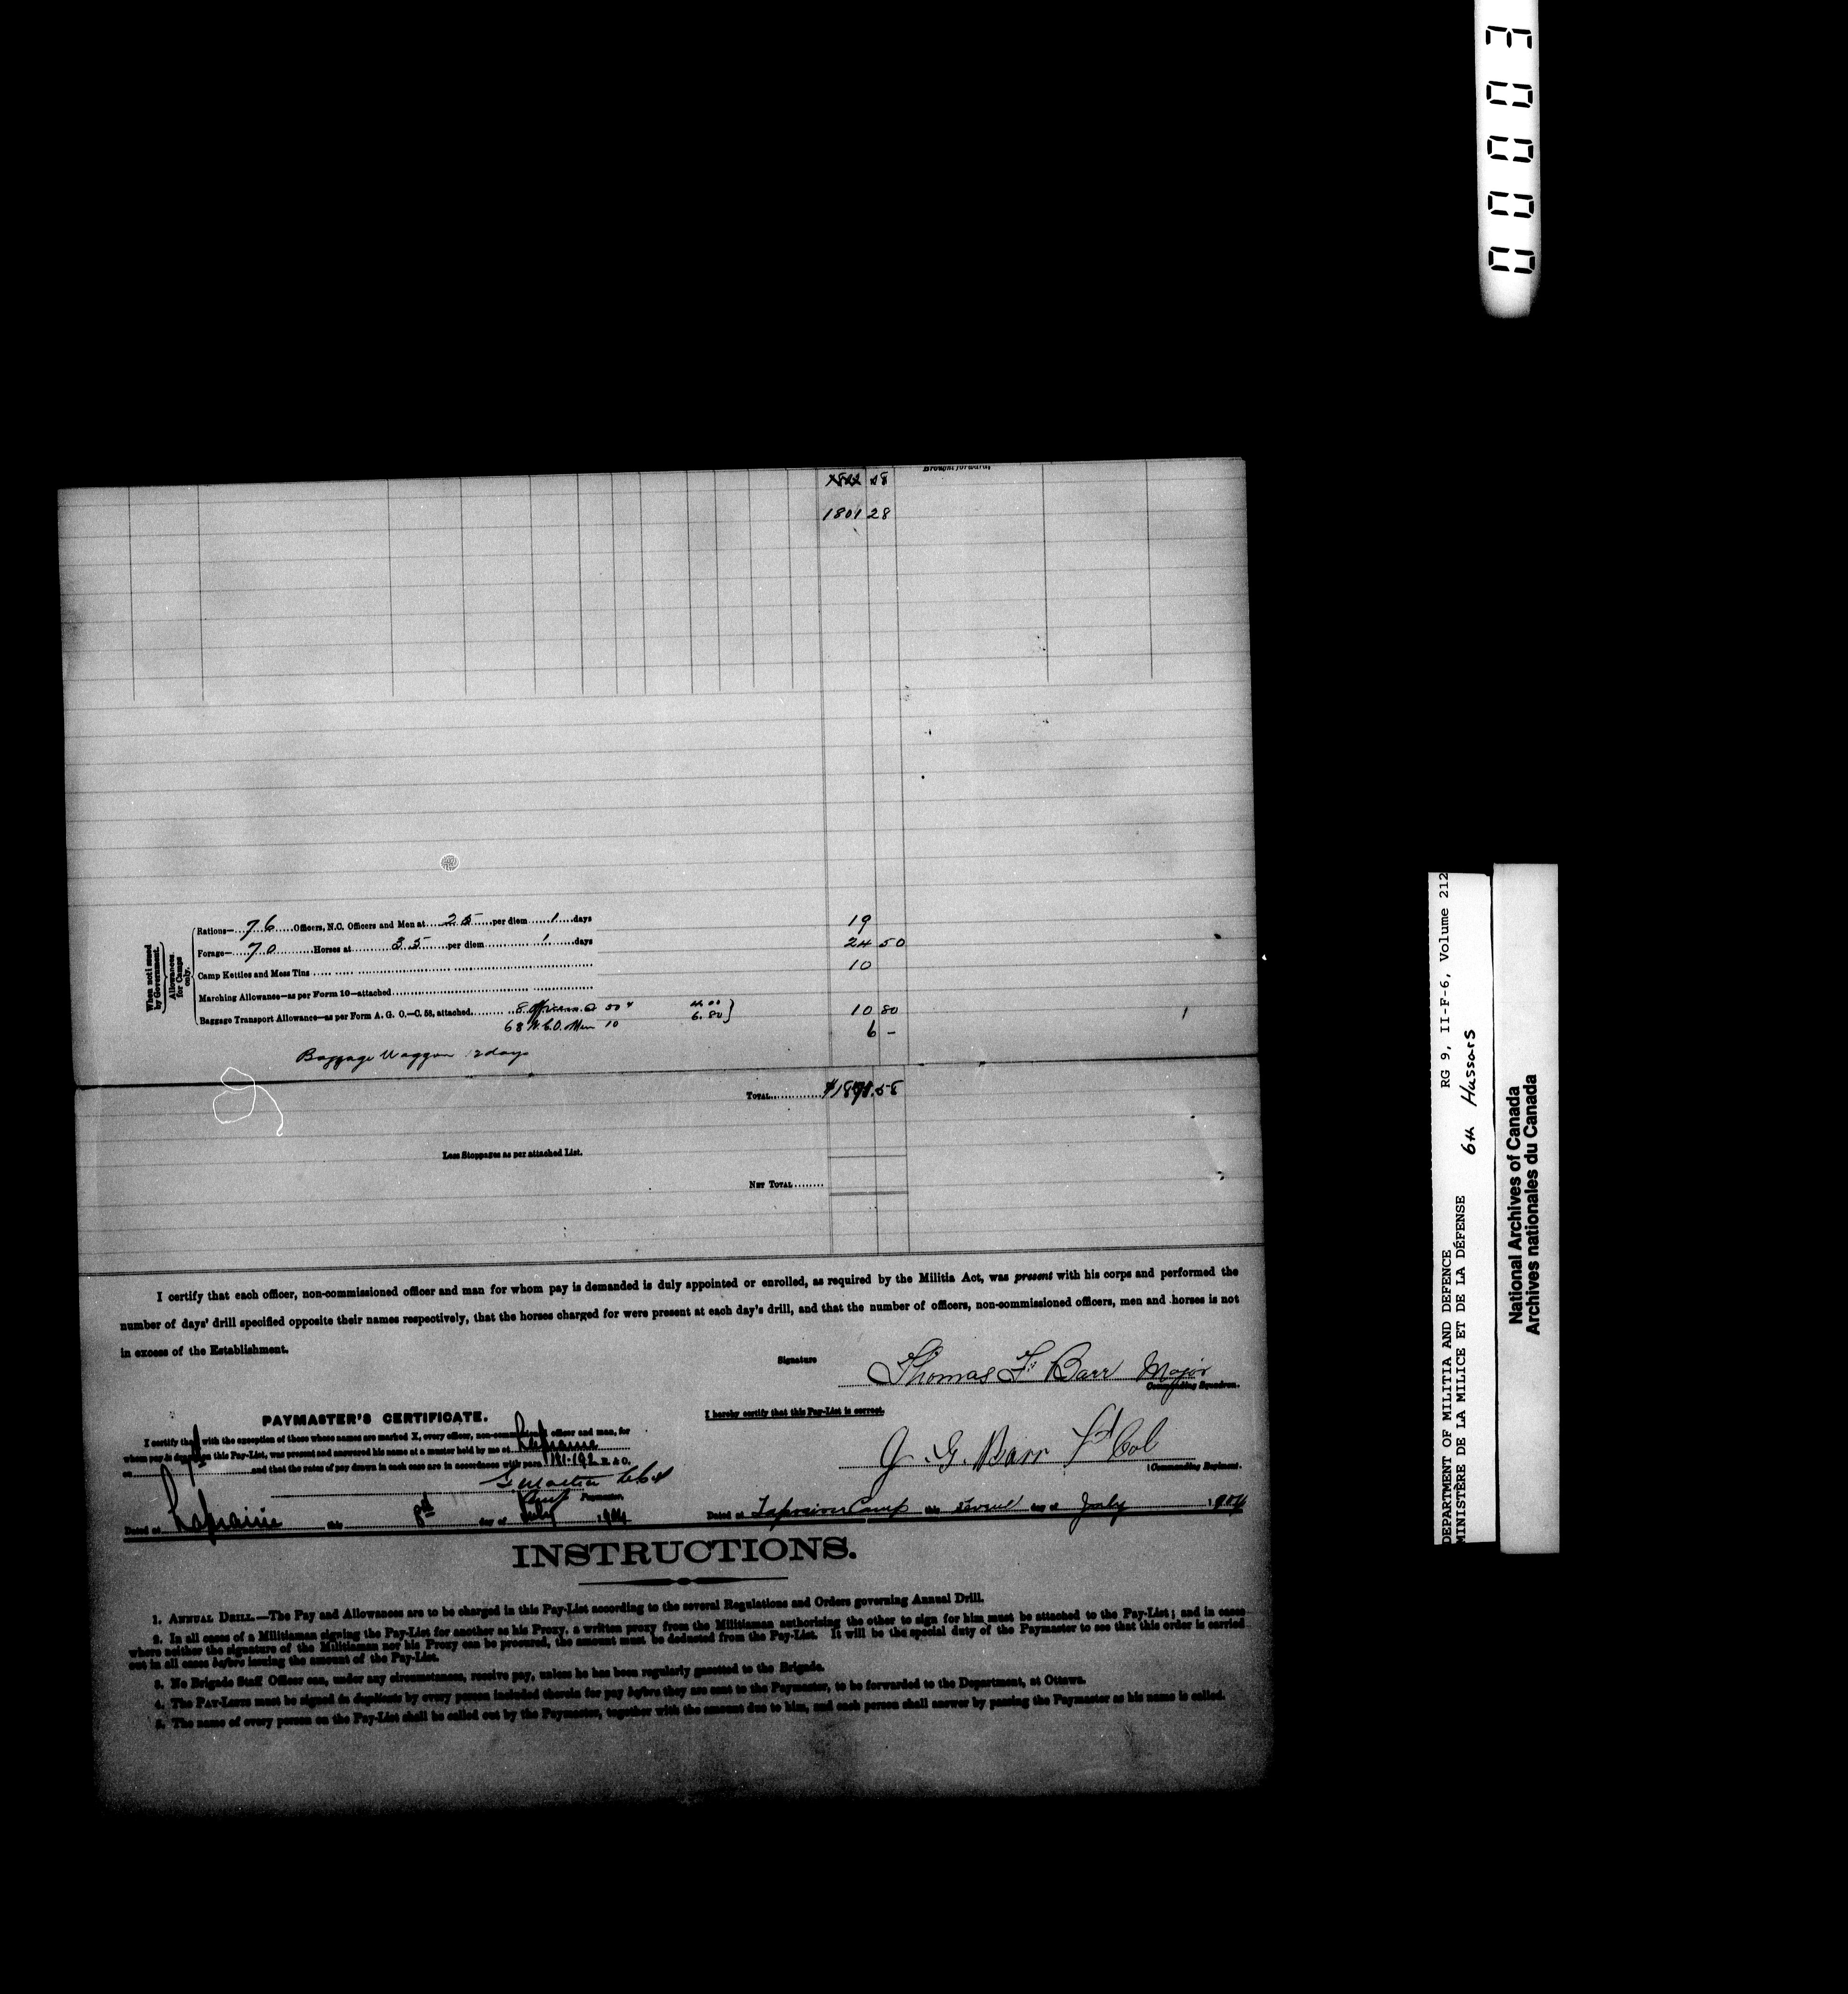 Brought forward,
1801 28
Rations—76 Officers, N.C. Officers and Men at 25 per diem 1 days 19
Forage—70 Horses at 35 per diem 1 days 24 50
Camp Kettles and Mess Tins 10
Marching Allowance—as per Form 10—attached
Baggage Transport Allowance—as per Form A. G. O.—C. 58, attached 8 Officers @ 50 4.00 10 80
68 N.C.O. Men 10 6.80
6 –
Baggage Waggon 2 days
When not issued by Government.
Allowances for Camps only.
TOTAL $1871.58
Less Stoppages as per attached List.
NET TOTAL
I certify that each officer, non-commissioned officer and man for whom pay is demanded is duly appointed or enrolled, as required by the Militia Act, was present with his corps and performed the
number of days' drill specified opposite their names respectively, that the horses charged for were present at each day's drill, and that the number of officers, non-commissioned officers, men and horses is not
in excess of the Establishment.
Signature Thomas F. Barr Major
Commanding Squadron.
PAYMASTER'S CERTIFICATE.
I certify that with the exception of those whose names are marked X, every officer, non-commissioned officer and man, for
whom pay is drawn on this Pay-List, was present and answered his name at a muster held by me at Laprairie
on and that the rates of pay drawn in each case are in accordance with para. 181-192 R. & O.
Paymaster.
Dated at Laprairie this day of July 1904
I hereby certify that this Pay-List is correct.
G. G. Barr Lt Col
Commanding Regiment.
Dated at Camp this day of July 1904
INSTRUCTIONS.
1. ANNUAL DRILL.—The Pay and Allowances are to be charged in this Pay-List according to the several Regulations and Orders governing Annual Drill.
2. In all cases of a Militiaman signing the Pay-List for another as his Proxy, a written proxy from the Militiaman authorizing the other to sign for him must be attached to the Pay-List; and in cases
where neither the signature of the Militiaman nor his Proxy can be procured, the amount must be deducted from the Pay-List. It will be the special duty of the Paymaster to see that this order is carried
out in all cases before issuing the amount of the Pay-List.
3. No Brigade Staff Officer can, under any circumstances, receive pay, unless he has been regularly gazetted to the Brigade.
4. The PAY-LISTS must be signed in duplicate by every person included therein for pay before they are sent to the Paymaster, to be forwarded to the Department, at Ottawa.
5. The name of every person on the Pay-List shall be called out by the Paymaster, together with the amount due to him, and each person shall answer by passing the Paymaster as his name is called.
DEPARTMENT OF MILITIA AND DEFENCE RG 9, II-F-6, Volume 212
MINISTÈRE DE LA MILICE ET DE LA DÉFENSE 6th Hussars
National Archives of Canada
Archives nationales du Canada